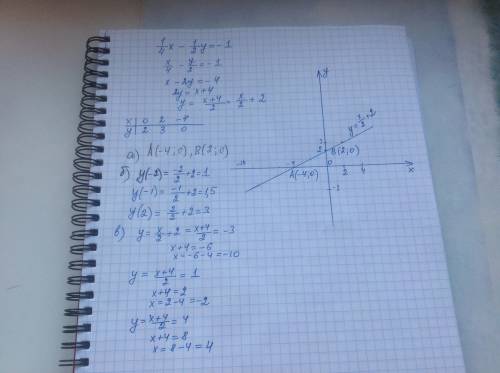 1/4 x - 1/2 y = -1
x/4 - y/2 = -1
x - 2y = -4
2y = x+4
y = (x+4)/2 = x/2 + 2
x | 0 | 2 | -4
y | 2 | 3 | 0
а) A(-4;0), B(2;0)
б) y(-2) = -2/2 + 2 = 1
y(-1) = -1/2 + 2 = 1,5
y(2) = 2/2 + 2 = 3
в) y = x/2 + 2 = (x+4)/2 = -3
x+4 = -6
x = -6-4 = -10
y = (x+4)/2 = 1
x+4 = 2
x = 2-4 = -2
y = (x+4)/2 = 4
x+4 = 8
x = 8-4 = 4
y
y = x/2 + 2
2
B(2;0)
A(-4;0)
0
2
4
x
-1